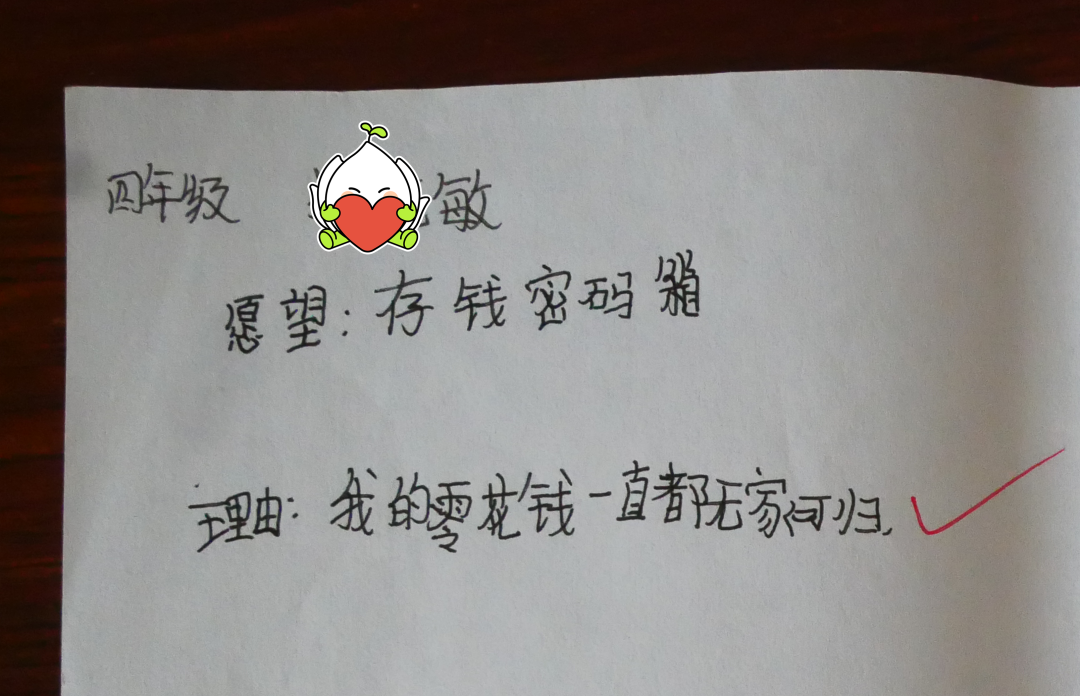 四年级 敏
愿望：存钱密码箱
理由：我的零花钱一直都无家何归.